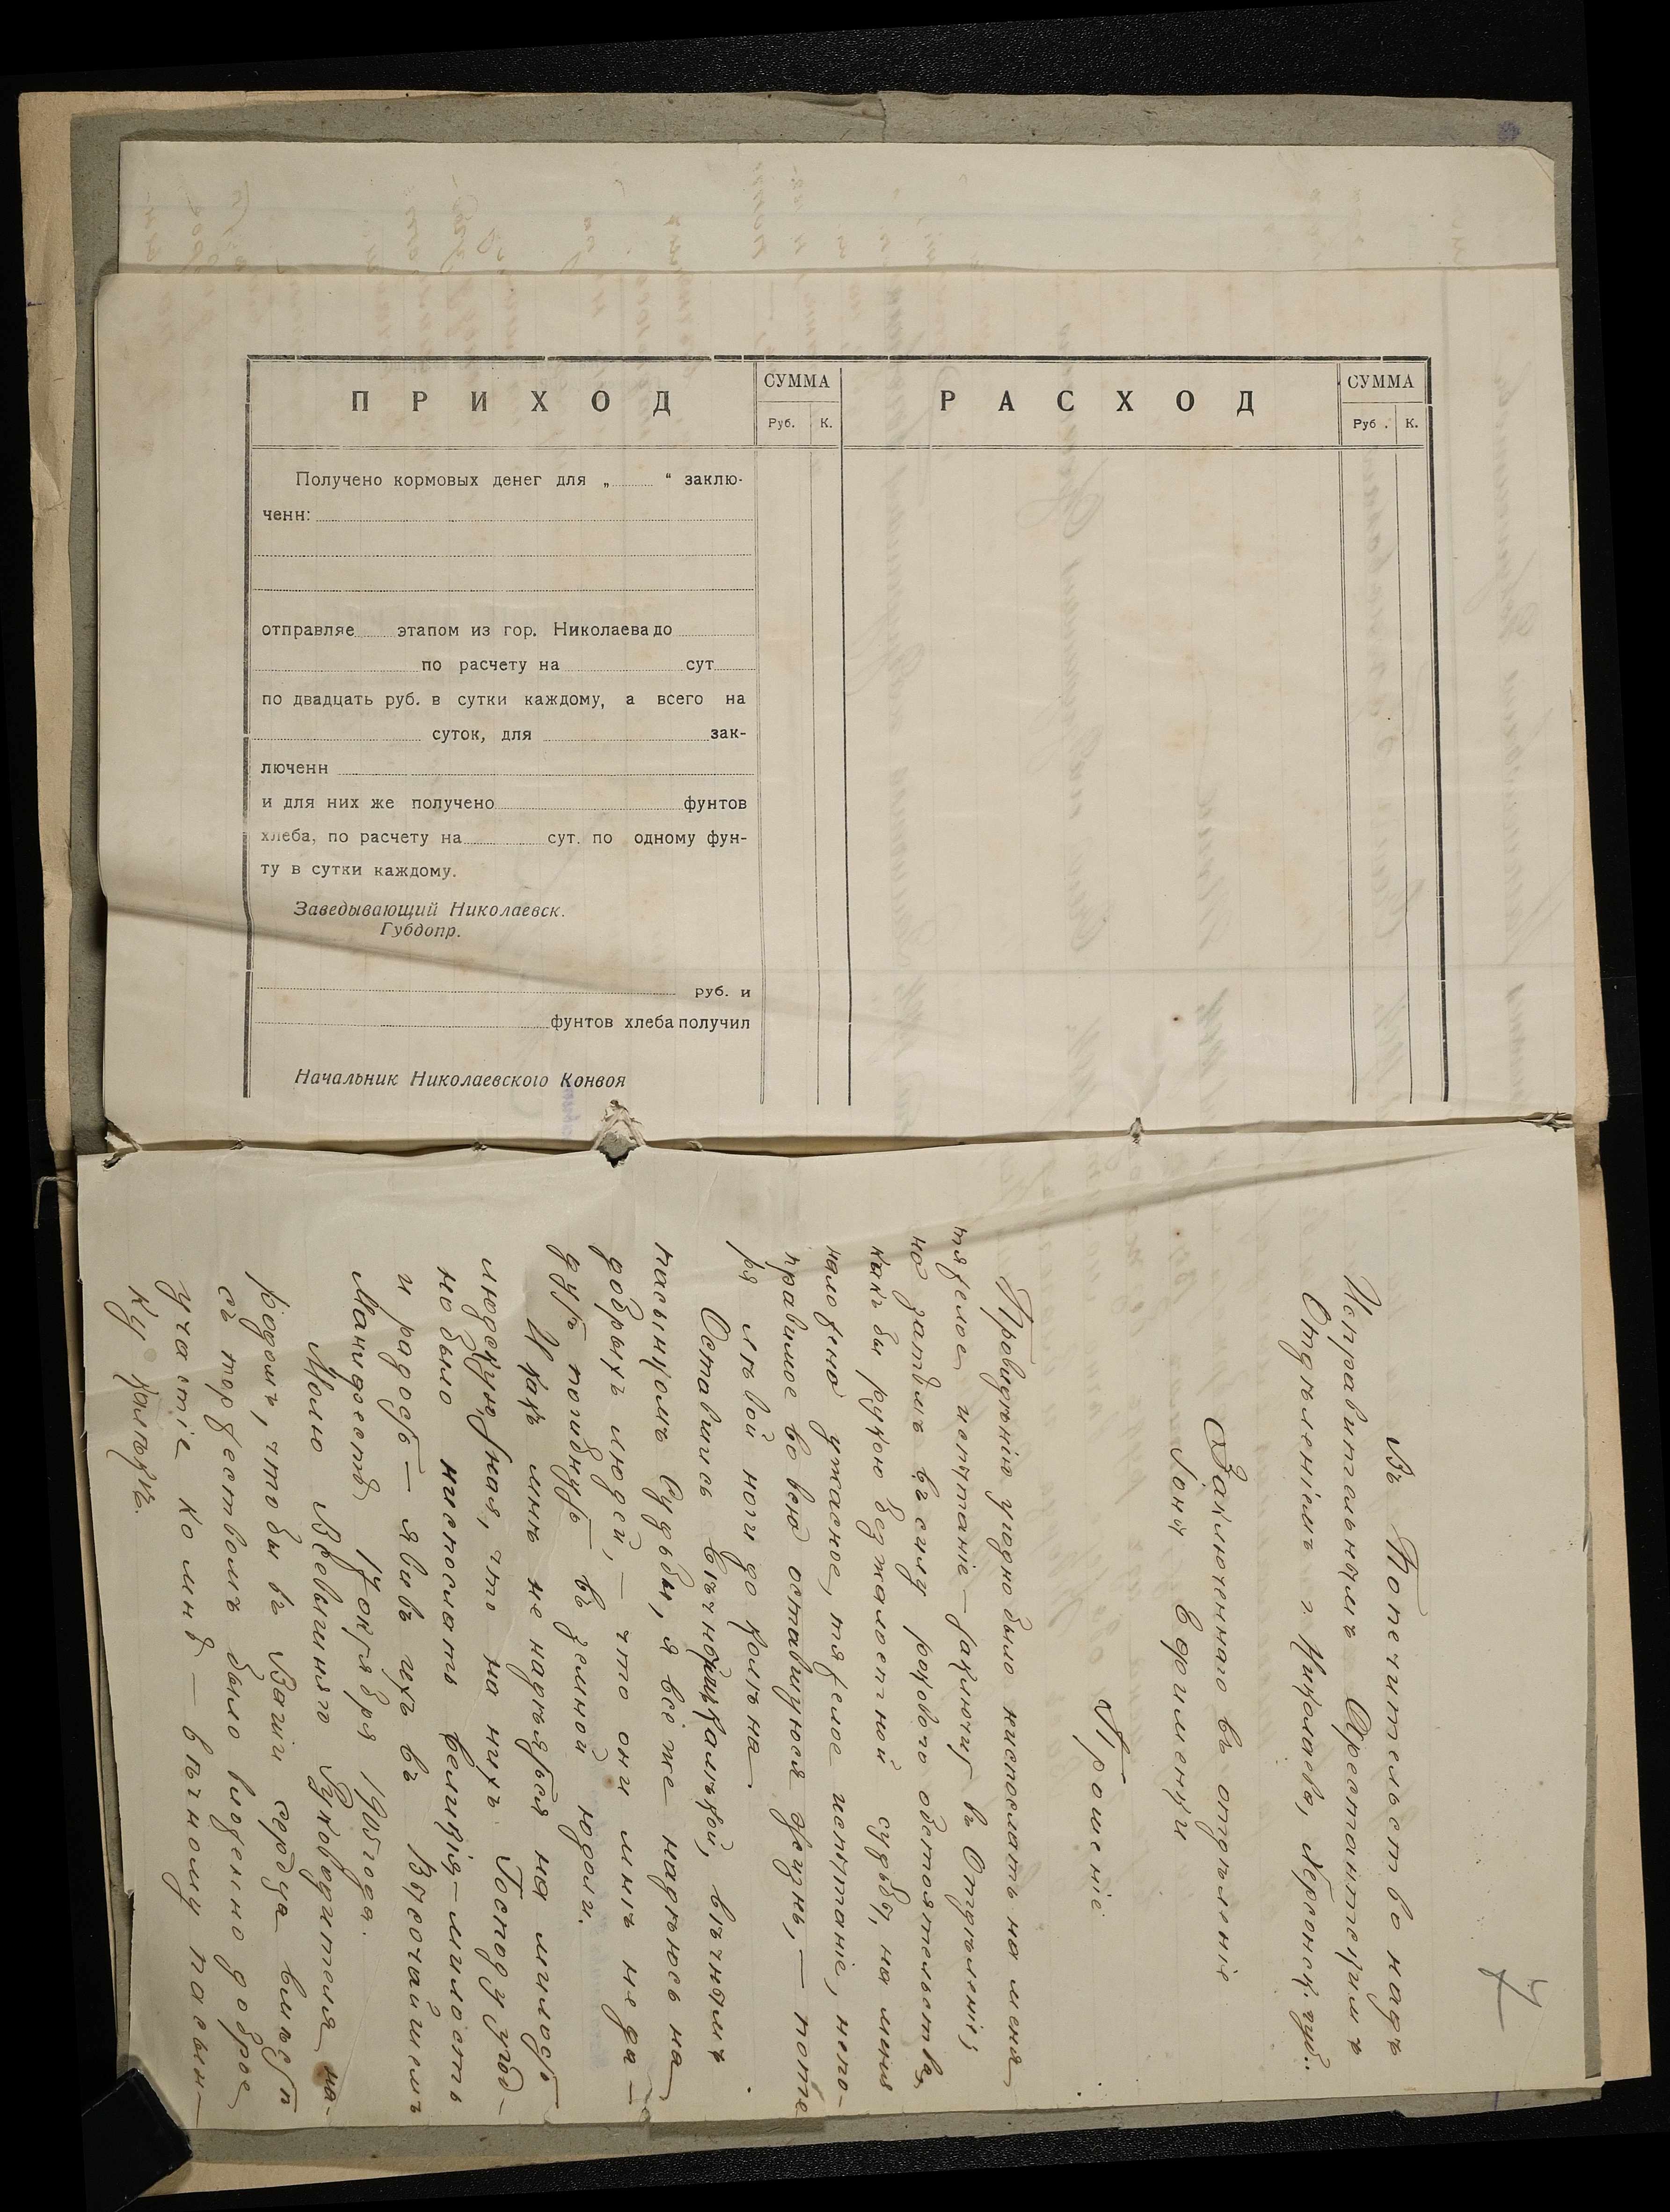 ПРИХОД
СУММА
Руб. К.
РАСХОД
СУММА
Руб. К.
Получено кормовых денег для „ “ заклю-
ченн:
отправляе этапом из гор. Николаева до
по расчету на сут
по двадцать руб. в сутки каждому, а всего на
суток, для зак-
люченн
и для них же получено фунтов
хлеба, по расчету на сут. по одному фун-
ту в сутки каждому.
Заведывающий Николаевск.
Губдопр.
руб. и
фунтов хлеба получил
Начальник Николаевского Конвоя
4
Въ Попечительство надъ
Исправительнымъ Арестантскимъ
Отдѣленіемъ г. Николаева, Херсонск. губ.
Заключеннаго въ отдѣленіе
Прошеніе.
Провидѣнію угодно было ниспослать на меня
тяжелое испытаніе – заключить въ Отдѣленіе,
но затѣмъ въ силу рокового обстоятельства,
какъ бы рукою безжалостной судьбы, на меня
наложено ужасное, тяжелое испытаніе, непо-
правимое во всю оставшуюся жизнь, – поте
ря лѣвой ноги до колѣна.
Оставшись вѣчнымъ калѣкой, вѣчнымъ
пасынкомъ Судьбы, я все же надѣюсь на
добрыхъ людей, – что они мнѣ не да-
дутъ погибнуть въ земной юдоли.
И какъ мнѣ не надѣяться на милость
людскую, зная, что на нихъ Господу угод-
но было ниспослать велікія – милость
и радость – явивъ ихъ въ Высочайшемъ
Манифестѣ 17 октября 1905 года.
Молю Всевышняго Руководителя на-
родомъ, чтобы въ Вашихъ сердца вмѣстѣ
съ торжествомъ было вложено доброе
участіе ко мнѣ – вѣчному пасын-
ку калѣкѣ.